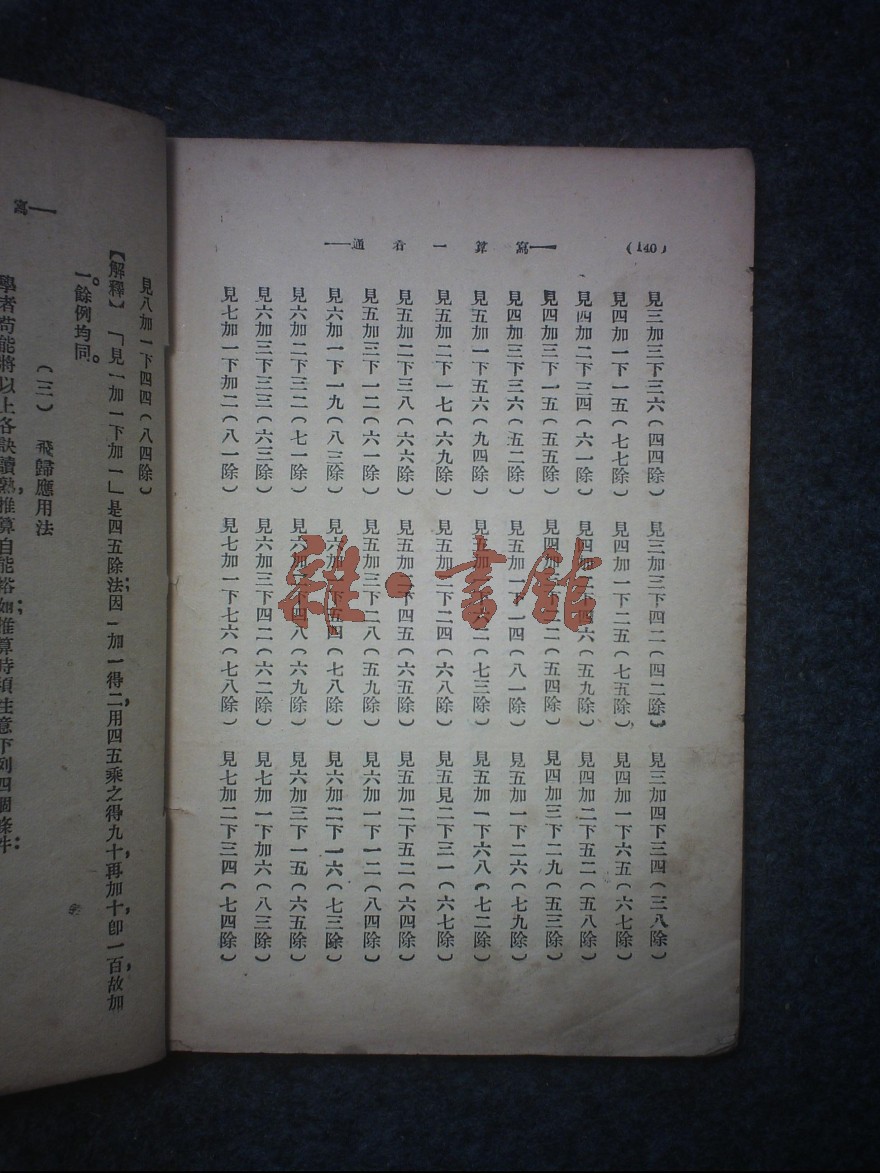 (140)
寫算一看通
見三加三下三六(四四除) 見三加三下四二(四二除) 見三加四下三四(三八除)
見四加一下一五(七七除) 見四加一下二五(七五除) 見四加一下六五(六七除)
見四加二下三四(六一除) 見四加二下四六(五九除) 見四加二下五二(五八除)
見四加三下一五(五五除) 見四加三下二二(五四除) 見四加三下二九(五三除)
見四加三下三六(五二除) 見五加一下一四(八一除) 見五加一下二六(七九除)
見五加一下五六(九四除) 見五加一下六二(七三除) 見五加一下六八(七二除)
見五加二下一七(六九除) 見五加二下二四(六八除) 見五見二下三一(六七除)
見五加二下三八(六六除) 見五加二下四五(六五除) 見五加二下五二(六四除)
見五加三下一二(六一除) 見五加三下二八(五九除) 見六加一下一二(八四除)
見六加一下一九(八三除) 見六加一下五四(七八除) 見六加二下一六(七三除)
見六加二下三二(七一除) 見六加二下四八(六九除) 見六加三下一五(六五除)
見六加三下三三(六三除) 見六加三下四二(六二除) 見七加一下加六(八三除)
見七加一下加二(八一除) 見七加一下七六(七八除) 見七加二下三四(七四除)
見八加一下四四(八四除)
【解釋】「見一加一下加一」是四五除法;因一加一得二,用四五乘之得九十,再加十,卽一百,故加
一。餘例均同。
(三) 飛歸應用法
學者苟能將以上各訣讀熟,推算自能裕如;推算時須注意下列四個條件:
寫
雜·書館